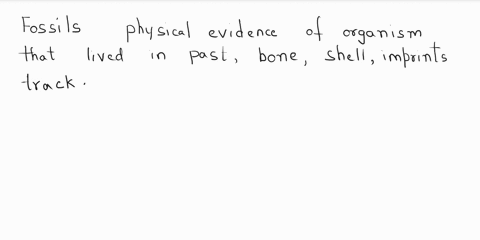 Fossils physical evidence of organism
that lived in past, bone, shell, imprints
track.